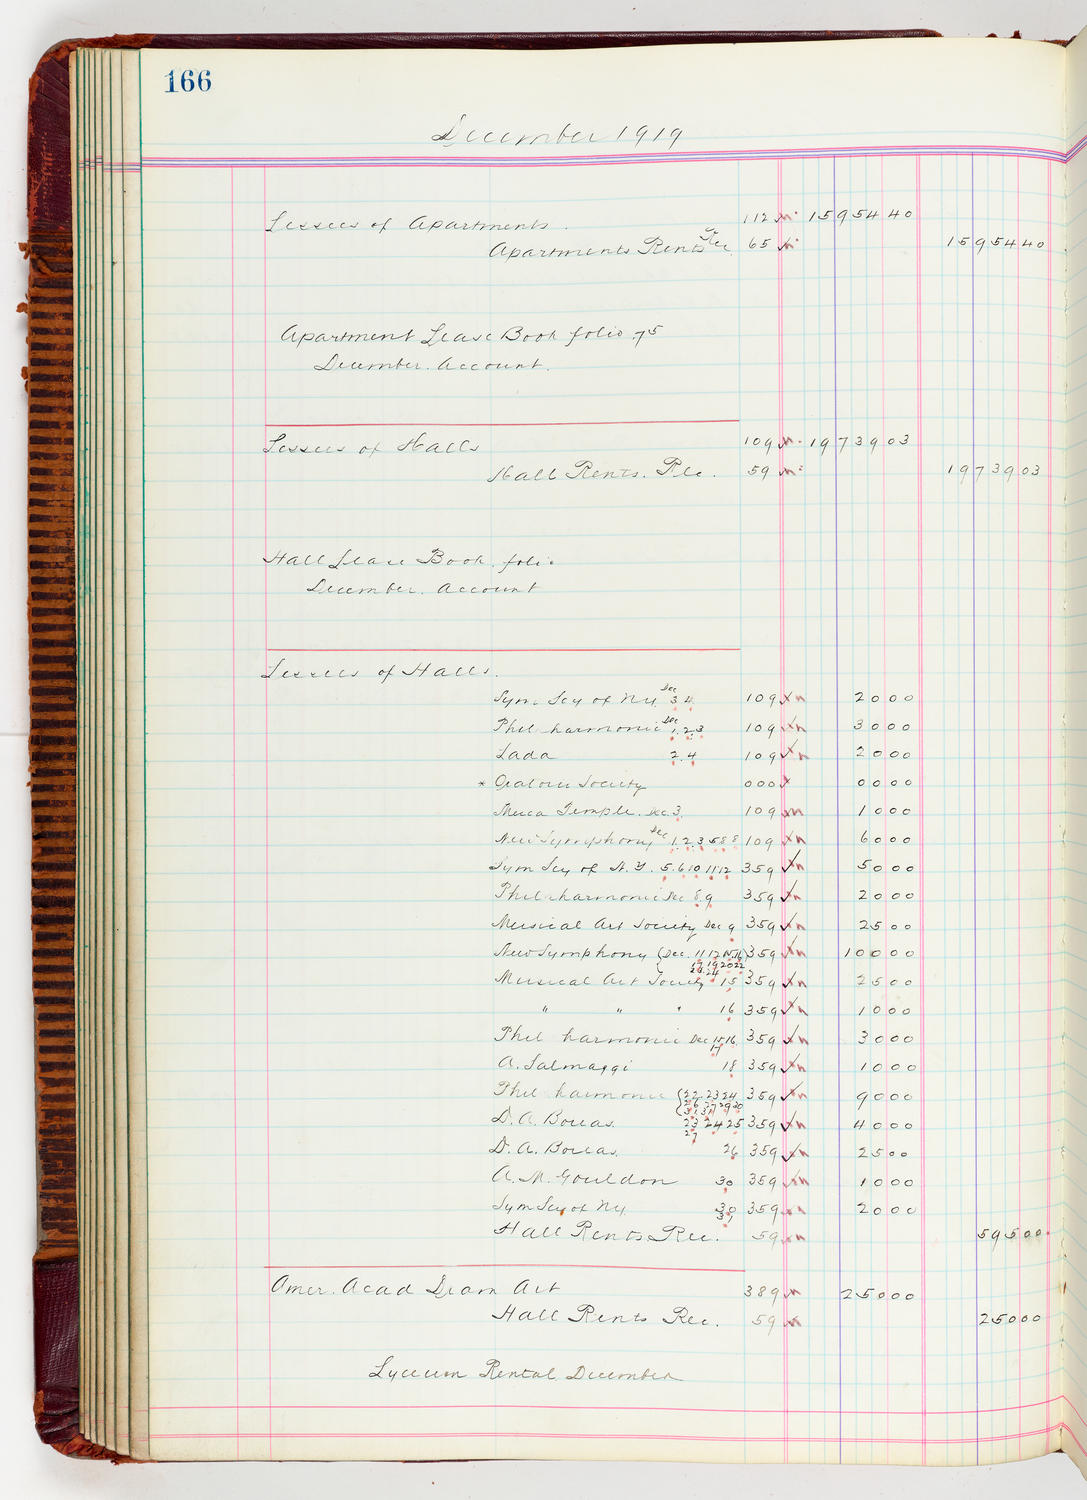 166
December 1919
Lessees of Apartments. 112 1595440
Apartments Rents Rec 65 1595440
Apartment Lease Book folio 75
December Account.
Lessees of Halls 109 1973903
Hall Rents. Rec. 59 1973903
Hall Lease Book folio
December. Account
Lessees of Halls.
Sym. Scy of N.Y. Dec 3 4 109 2000
Phil harmonic Dec 1.2.3 109 3000
Lada 2.4 109 2000
* Oratorio Society 000 0000
Mecca Temple. Dec. 3. 109 1000
New Symphony Dec 1.2.3 5 8 8 109 6000
Sym Scy of N.Y. 5.6.10 11 12 359 5000
Phil harmonic Dec 8.9 359 2000
Musical Art Society Dec 9 359 2500
New Symphony (Dec. 11 12 15 16 359 10000
17 19 20 22
Musical Art Society 15 359 2500
" " " 16 359 1000
Phil harmonic Dec 15 16 359 3000
17
A. Salmaggi 18 359 1000
Phil harmonic (22 23 24 359 9000
D. A. Boucas. 23 24 25 359 4000
27
D. A. Boucas. 26 359 2500
A. M. Gouldon 30 359 1000
Sym Scy of N.Y. 30 359 2000
31
Hall Rents Rec. 59 59500
Amer. Acad Dram Art 389 25000
Hall Rents Rec. 59 25000
Lyceum Rental December